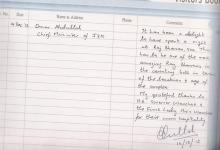 Visitors' Book
No.
Date
Name & Address
Phone
Comments
Omar Abdullah
Chief Minister of J&K
It has been a delight
to have spent a night
at Raj Bhavan, Goa. This
has to be one of the most
amazing Raj Bhavans in
the country both in terms
of the location & age of
the complex.
My grateful thanks to
the Governor
the First Lady
for their warm hospitality